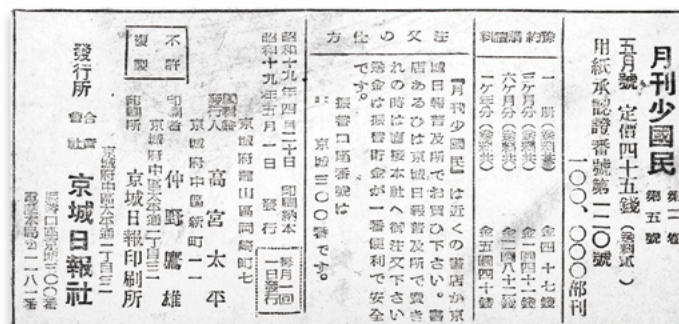 月刊少國民 第二卷 第五號
五月號 定價四十五錢(送料貳)
用紙承認證番號第一二〇號
一〇〇、〇〇〇部刊
豫約購讀料
一冊(送料共) 金四十七錢
三ヶ月分(送料共) 金一圓四十一錢
六ヶ月分(送料共) 金二圓八十二錢
一ケ年分(送料共) 金五圓四十錢
注文の仕方
『月刊少國民』は近くの書店か京
城日報普及所でお買ひ下さい。書
店あるひは京城日報普及所で賣き
れの時は直接本社へ御注文下さい
送金は振替貯金が一番便利で安全
です。
振替口座番號は
京城三〇〇番です。
昭和十九年四月二十日 印刷納本
昭和十九年五月一日 發行
每月一回一日發行
京城府龍山區岡崎町七
發行人 高宮太平
京城府中區新町一一
印刷者 仲野鷹雄
京城府中區太平通一丁目三一
印刷所 京城日報印刷所
不許複製
京城府中區太平通一丁目三一
發行所 合資會社 京城日報社
振替口座京城三〇〇番
電話本局②一一八一番